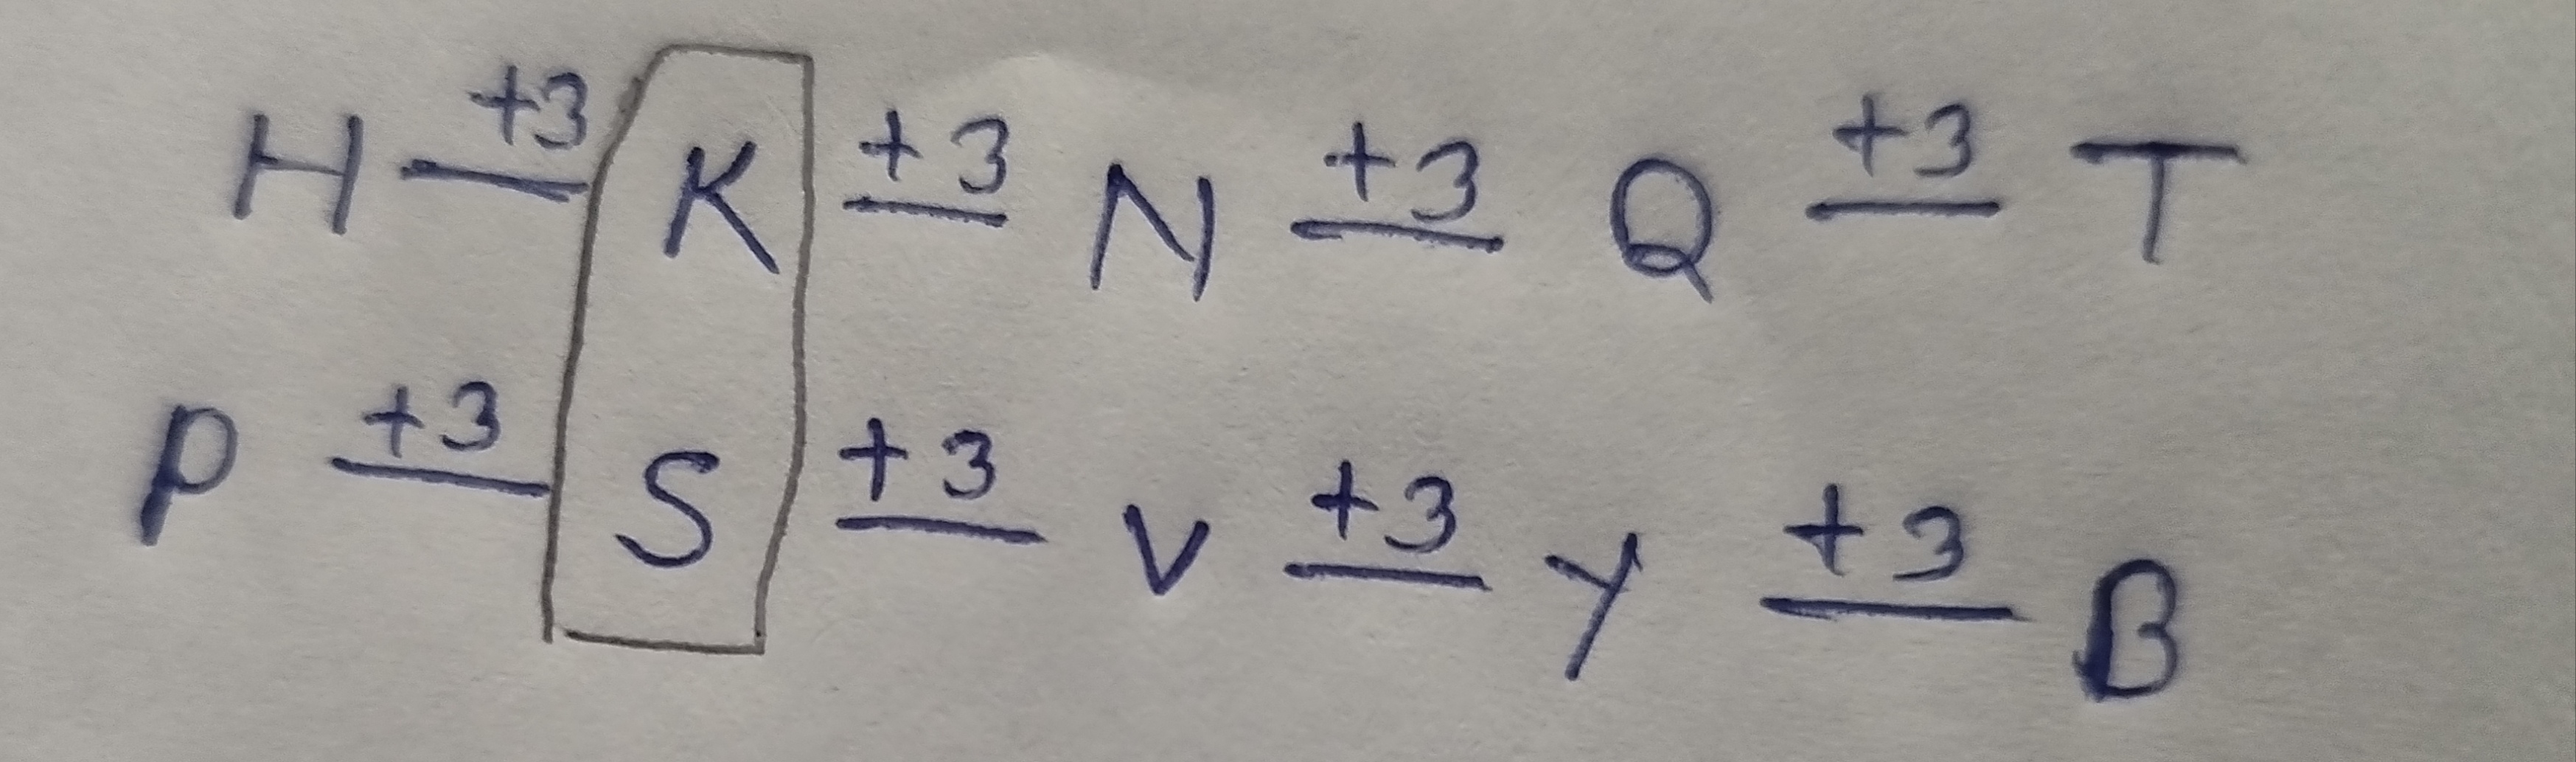 H +3 K +3 N +3 Q +3 T
P +3 S +3 V +3 Y +3 B